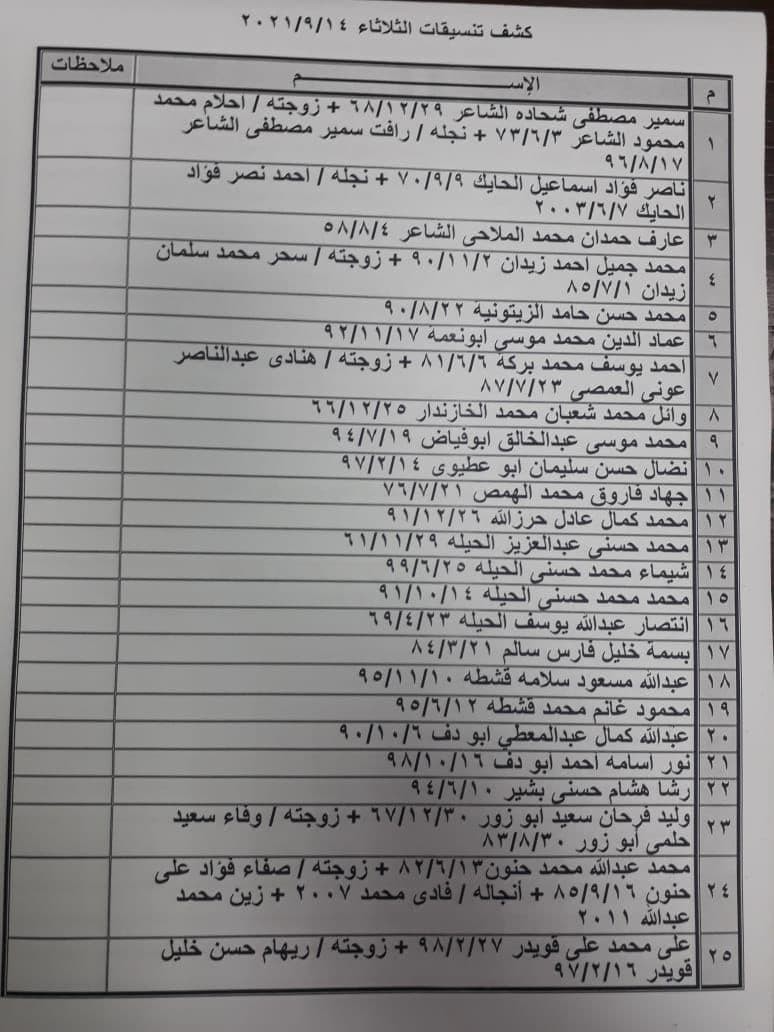 كشف تنسيقات الثلاثاء ٢٠٢١/٩/١٤
م الإســــــــــم ملاحظات
١ سمير مصطفى شحاده الشاعر ٦٨/١٢/٢٩ + زوجته / احلام محمد
محمود الشاعر ٧٣/٦/٣ + نجله / رافت سمير مصطفى الشاعر
٩٦/٨/١٧
٢ ناصر فؤاد اسماعيل الحايك ٧٠/٩/٩ + نجله / احمد نصر فؤاد
الحايك ٢٠٠٣/٦/٧
٣ عارف حمدان محمد الملاحى الشاعر ٥٨/٨/٤
٤ محمد جميل احمد زيدان ٩٠/١١/٢ + زوجته / سحر محمد سلمان
زيدان ٨٥/٧/١
٥ محمد حسن حامد الزيتونية ٩٠/٨/٢٢
٦ عماد الدين محمد موسي ابونعمة ٩٢/١١/١٧
٧ احمد يوسف محمد بركة ٨١/٦/٦ + زوجته / هنادى عبدالناصر
عوني العمصي ٨٧/٧/٢٣
٨ وائل محمد شعبان محمد الخازندار ٦٦/١٢/٢٥
٩ محمد موسى عبدالخالق ابوفياض ٩٤/٧/١٩
١٠ نضال حسن سليمان ابو عطيوى ٩٧/٢/١٤
١١ جهاد فاروق محمد الهمص ٧٦/٧/٢١
١٢ محمد كمال عادل حرزالله ٩١/١٢/٢٦
١٣ محمد حسني عبدالعزيز الحيله ٦١/١١/٢٩
١٤ شيماء محمد حسنى الحيله ٩٩/٦/٢٥
١٥ محمد محمد حسنى الحيله ٩١/١٠/١٤
١٦ انتصار عبدالله يوسف الحيله ٦٩/٤/٢٣
١٧ بسمة خليل فارس سالم ٨٤/٣/٢١
١٨ عبدالله مسعود سلامه قشطه ٩٥/١١/١٠
١٩ محمود غانم محمد قشطه ٩٥/٦/١٢
٢٠ عبدالله كمال عبدالمعطي ابو دف ٩٠/١٠/٦
٢١ نور اسامه احمد ابو دف ٩٨/١٠/١٦
٢٢ رشا هشام حسنى بشير ٩٤/٦/١٠
٢٣ وليد فرحان سعيد أبو زور ٦٧/١٢/٣٠ + زوجته / وفاء سعيد
حلمي أبو زور ٨٣/٨/٣٠
٢٤ محمد عبدالله محمد حنون٨٢/٦/١٣ + زوجته / صفاء فؤاد على
حنون ٨٥/٩/١٦ + أنجاله / فادى محمد ٢٠٠٧ + زين محمد
عبدالله ٢٠١١
٢٥ على محمد على قويدر ٩٨/٢/٢٧ + زوجته / ريهام حسن خليل
قويدر ٩٧/٢/١٦